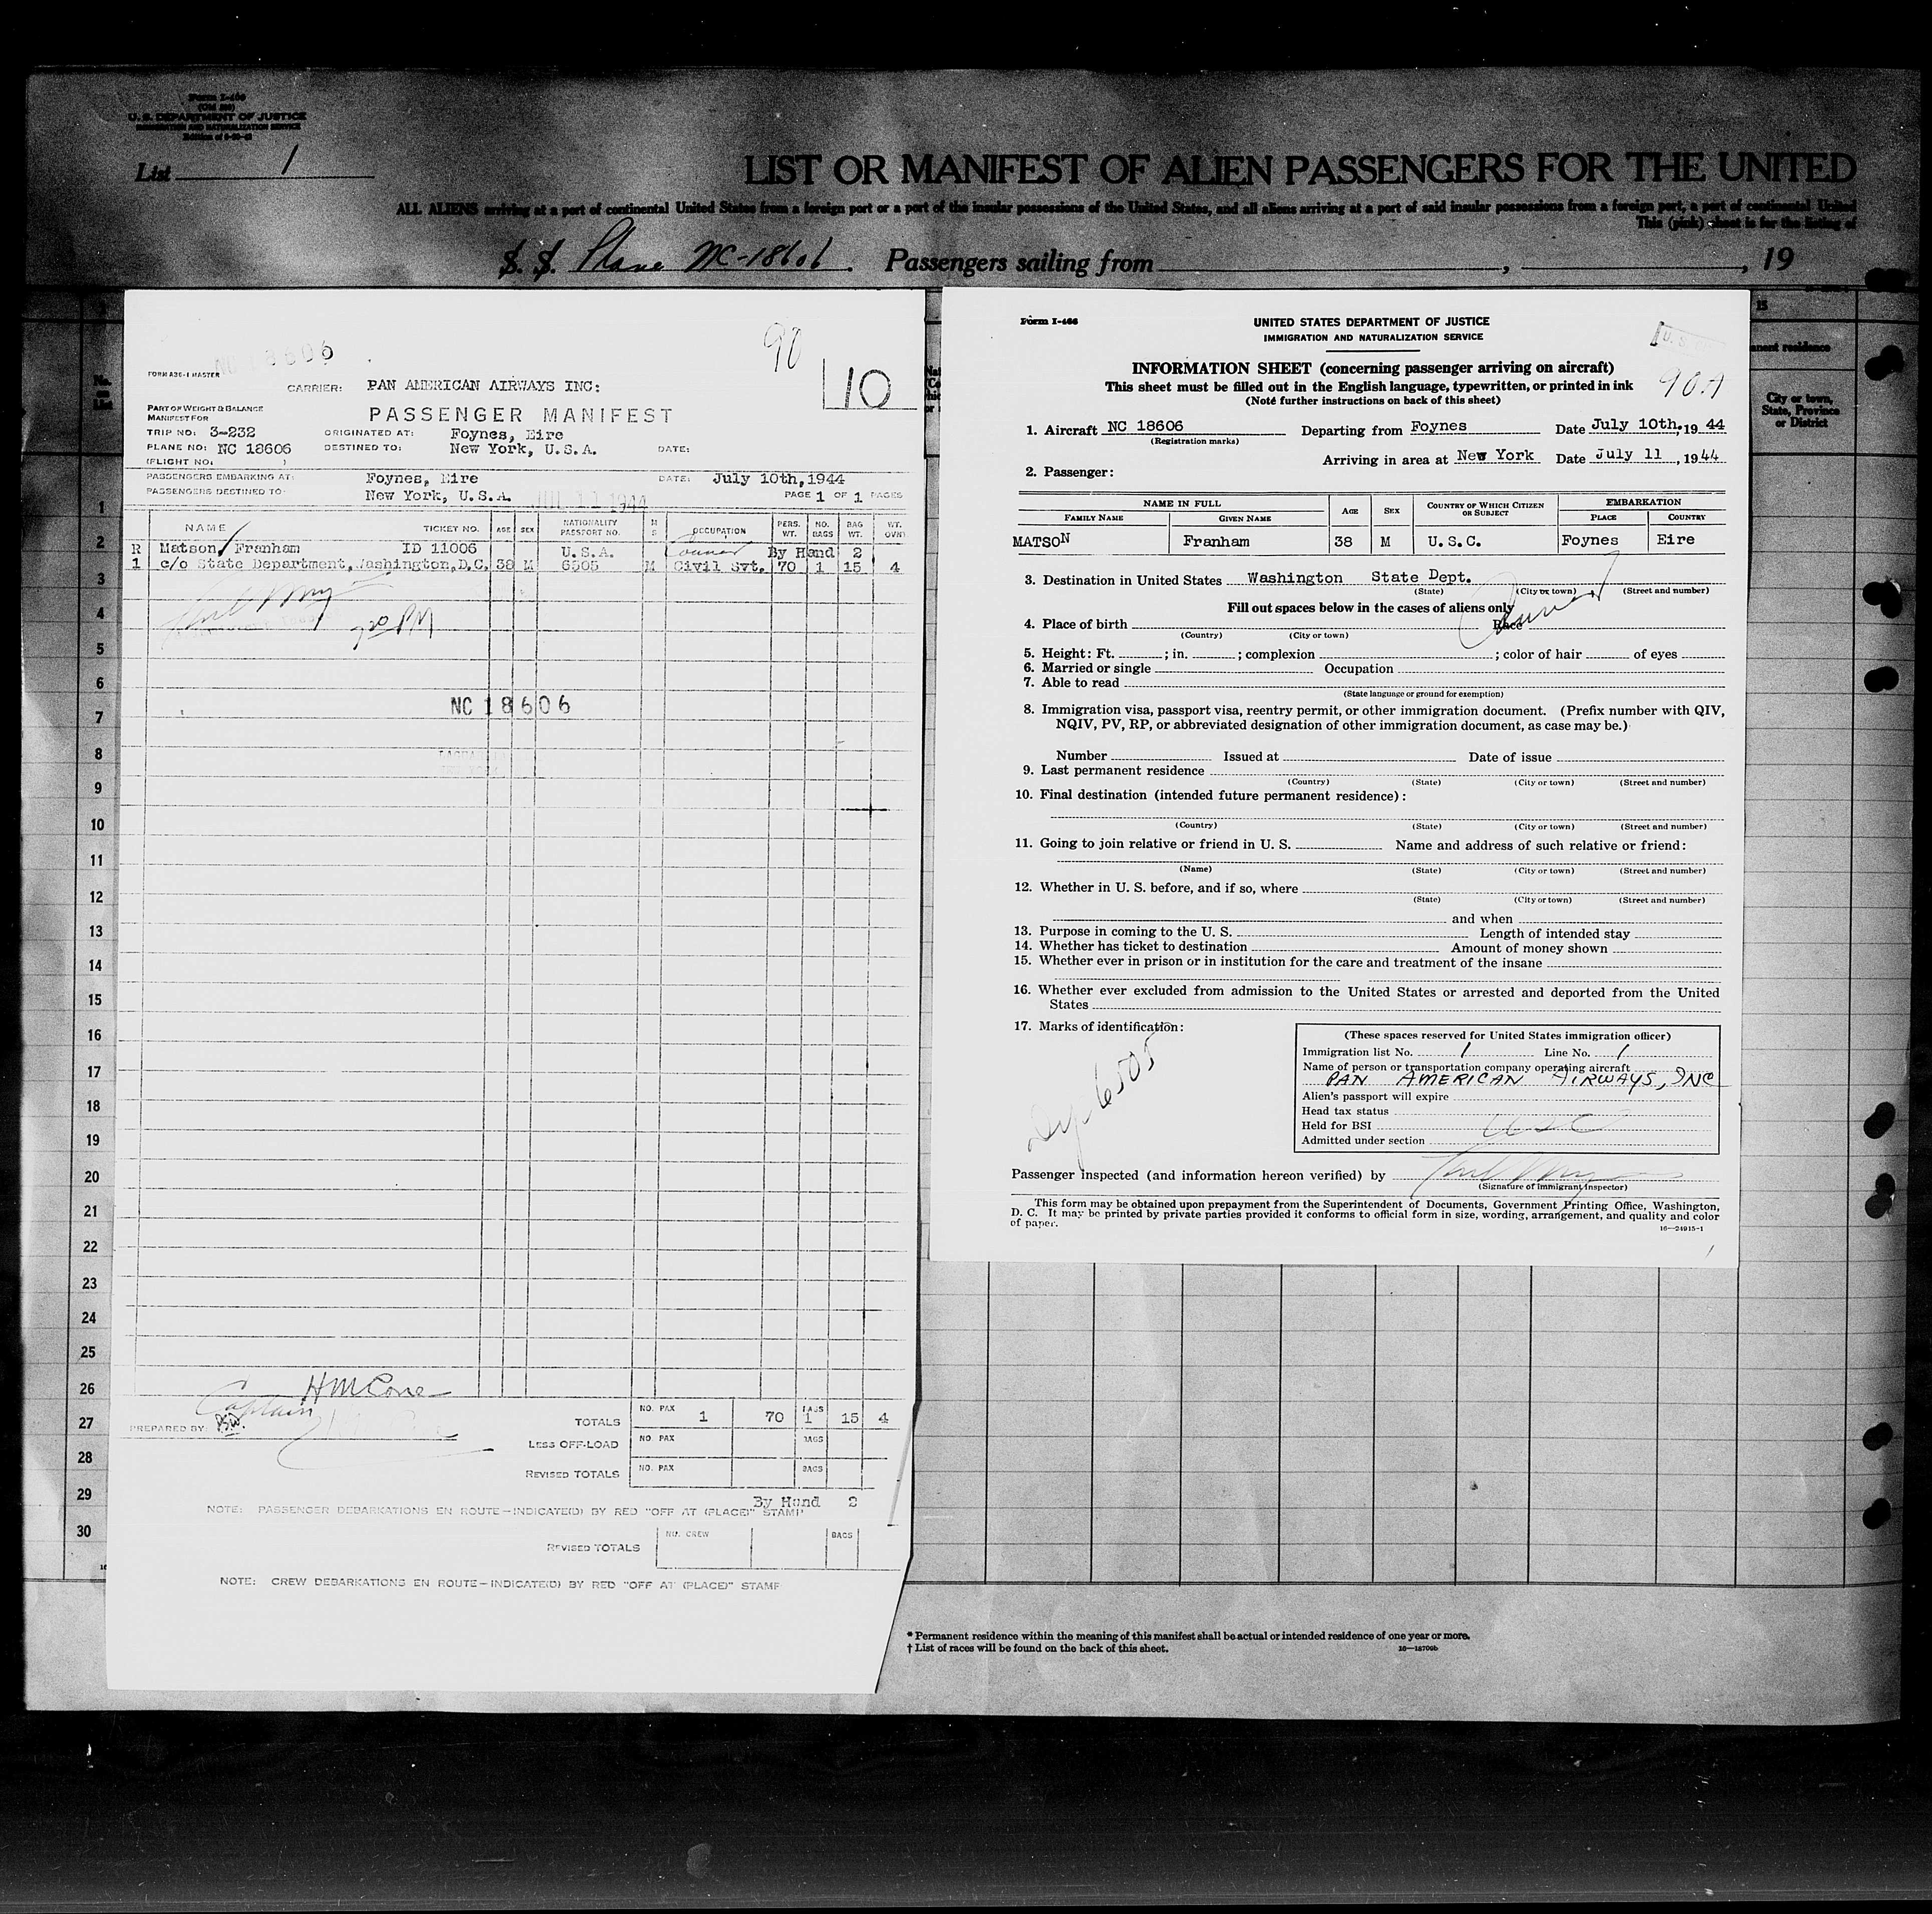 Form I-466
U. S. DEPARTMENT OF JUSTICE
IMMIGRATION AND NATURALIZATION SERVICE
List 1
LIST OR MANIFEST OF ALIEN PASSENGERS FOR THE UNITED
ALL ALIENS arriving at a port of continental United States from a foreign port or a port of the insular possessions of the United States, and all aliens arriving at a port of said insular possessions from a foreign port, a port of continental United
This (pink) sheet is for the listing of
S. S. Plane NC-18606. Passengers sailing from , , 19
NC 18606
90
10
FORM A36-1 MASTER
CARRIER: PAN AMERICAN AIRWAYS INC:
PART OF WEIGHT & BALANCE
MANIFEST FOR
PASSENGER MANIFEST
TRIP NO: 3-232 ORIGINATED AT: Foynes, Eire
PLANE NO: NC 18606 DESTINED TO: New York, U.S.A. DATE:
(FLIGHT NO: )
PASSENGERS EMBARKING AT: Foynes, Eire DATE: July 10th, 1944
PASSENGERS DESTINED TO: New York, U.S.A. JUL 11 1944 PAGE 1 OF 1 PAGES
NAME TICKET NO. AGE SEX NATIONALITY PASSPORT NO. M S OCCUPATION PERS. WT. NO. BAGS BAG WT. WT. OVR
R Matson, Franham ID 11006 U.S.A. Courier By Hand 2
1 c/o State Department, Washington, D.C. 38 M 6505 M Civil Svt. 70 1 15 4
7 20 PM
NC 18606
1
2
3
4
5
6
7
8
9
10
11
12
13
14
15
16
17
18
19
20
21
22
23
24
25
26
27
28
29
30
Captain
PREPARED BY:
TOTALS NO. PAX 1 70 BAGS 1 15 4
LESS OFF-LOAD NO. PAX BAGS
REVISED TOTALS NO. PAX BAGS
By Hand 2
NOTE: PASSENGER DEBARKATIONS EN ROUTE—INDICATE(D) BY RED "OFF AT (PLACE)" STAMP
REVISED TOTALS NO. CREW BAGS
NOTE: CREW DEBARKATIONS EN ROUTE—INDICATE(D) BY RED "OFF AT (PLACE)" STAMP
Form I-466
UNITED STATES DEPARTMENT OF JUSTICE
IMMIGRATION AND NATURALIZATION SERVICE
INFORMATION SHEET (concerning passenger arriving on aircraft)
This sheet must be filled out in the English language, typewritten, or printed in ink
(Note further instructions on back of this sheet)
90A
1. Aircraft NC 18606 Departing from Foynes Date July 10th, 19 44
(Registration marks)
Arriving in area at New York Date July 11, 1944
2. Passenger:
NAME IN FULL AGE SEX COUNTRY OF WHICH CITIZEN OR SUBJECT EMBARKATION
FAMILY NAME GIVEN NAME PLACE COUNTRY
MATSON Franham 38 M U.S.C. Foynes Eire
3. Destination in United States Washington State Dept.
(State) (City or town) (Street and number)
Fill out spaces below in the cases of aliens only
4. Place of birth Race
(Country) (City or town)
5. Height: Ft. ; in. ; complexion ; color of hair of eyes
6. Married or single Occupation
7. Able to read
(State language or ground for exemption)
8. Immigration visa, passport visa, reentry permit, or other immigration document. (Prefix number with QIV,
NQIV, PV, RP, or abbreviated designation of other immigration document, as case may be.)
Number Issued at Date of issue
9. Last permanent residence
(Country) (State) (City or town) (Street and number)
10. Final destination (intended future permanent residence):
(Country) (State) (City or town) (Street and number)
11. Going to join relative or friend in U. S. Name and address of such relative or friend:
(Name) (State) (City or town) (Street and number)
12. Whether in U. S. before, and if so, where
(State) (City or town) (Street and number)
and when
13. Purpose in coming to the U. S. Length of intended stay
14. Whether has ticket to destination Amount of money shown
15. Whether ever in prison or in institution for the care and treatment of the insane
16. Whether ever excluded from admission to the United States or arrested and deported from the United
States
17. Marks of identification:
6505
(These spaces reserved for United States immigration officer)
Immigration list No. 1 Line No. 1
Name of person or transportation company operating aircraft
PAN AMERICAN AIRWAYS, INC
Alien's passport will expire
Head tax status
Held for BSI USC
Admitted under section
Passenger inspected (and information hereon verified) by
(Signature of Immigrant Inspector)
This form may be obtained upon prepayment from the Superintendent of Documents, Government Printing Office, Washington,
D. C. It may be printed by private parties provided it conforms to official form in size, wording, arrangement, and quality and color
of paper.
16—24915-1
15
anent residence
City or town,
State, Province
or District
* Permanent residence within the meaning of this manifest shall be actual or intended residence of one year or more.
† List of races will be found on the back of this sheet.